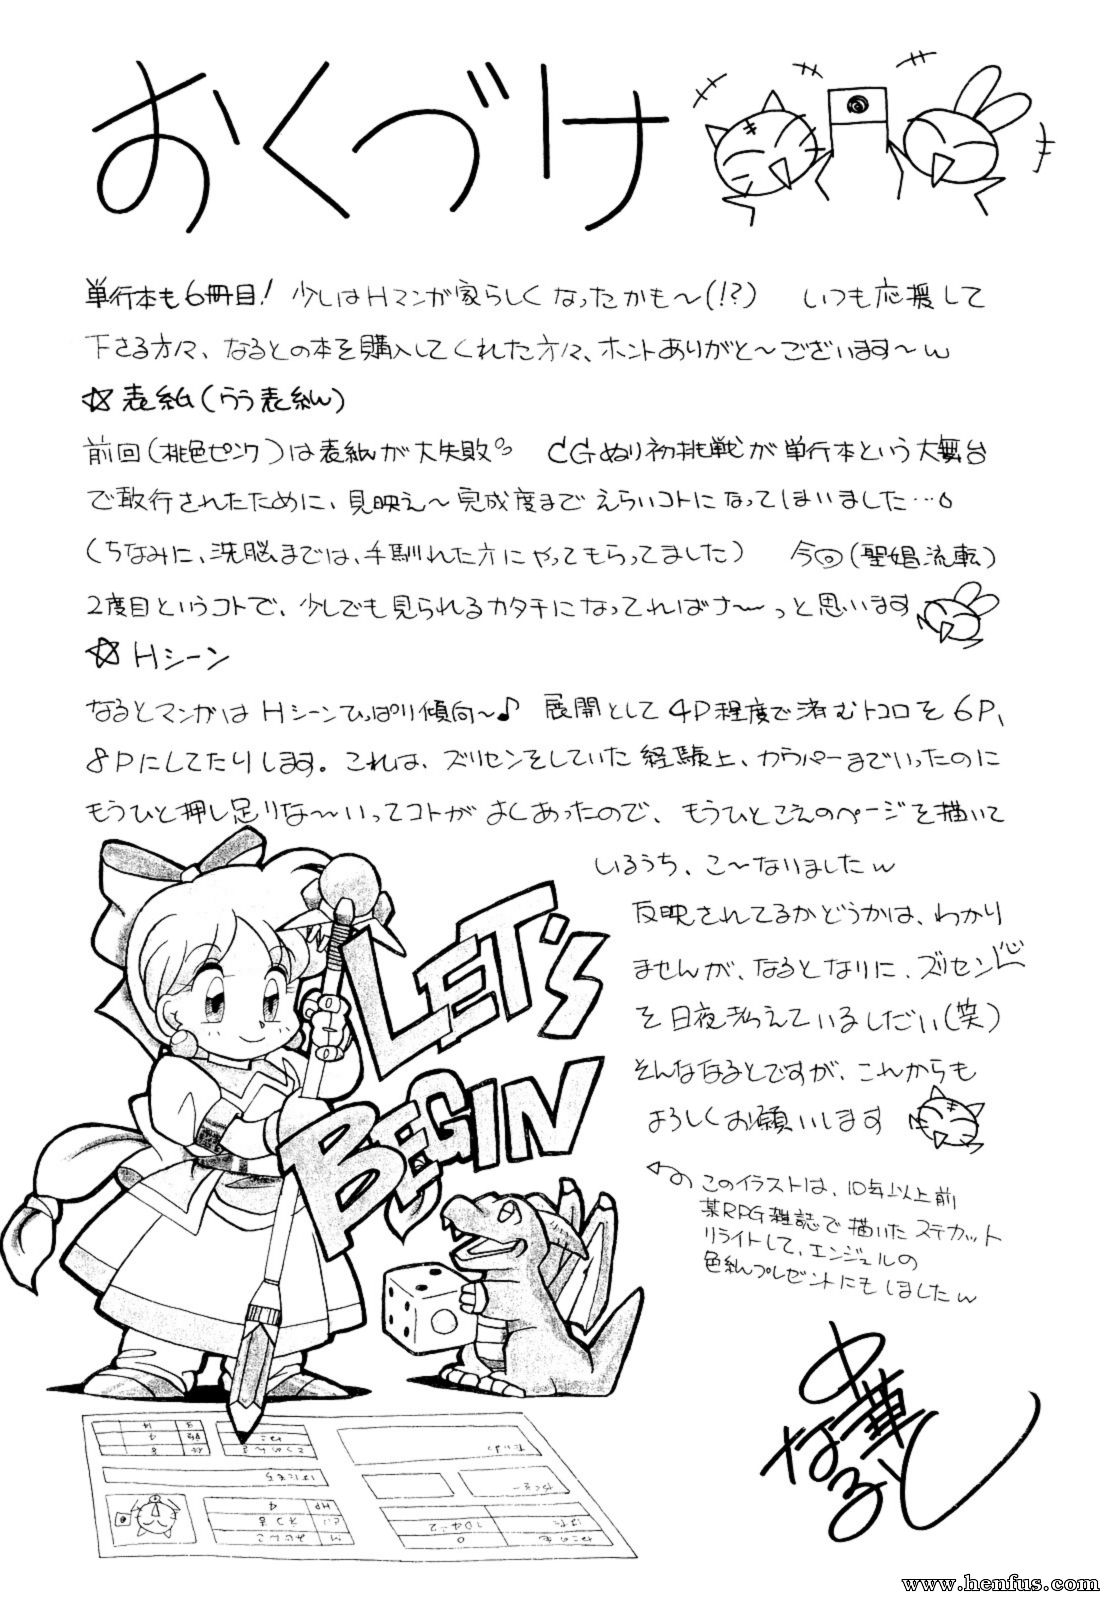 おくづけ
単行本も6冊目! 少しはHマンガ家らしくなったかも〜(!?) いつも応援して
下さる方々、なるとの本を購入してくれた方々、ホントありがと〜ございます〜w
☆表紙(うら表紙)
前回(桃色ピンク)は表紙が大失敗。 CGぬり初挑戦が単行本という大舞台
で敢行されたために、見映え〜完成度までえらいコトになってしまいました…。
(ちなみに、洗脳までは、手馴れた方にやってもらってました) 今回(聖娼流転)
2度目というコトで、少しでも見られるカタチになってればナ〜っと思います
☆Hシーン
なるとマンガはHシーンひっぱり傾向〜♪ 展開として4P程度で済むトコロを6P、
8Pにしてたりします。これは、ズリセンをしていた経験上、カウパーまでいったのに
もうひと押し足りな〜いってコトがよくあったので、もうひとこえのページを描いて
いるうち、こ〜なりましたw
反映されてるかどうかは、わかり
ませんが、なるとなりに、ズリセン心
を日夜考えているしだい(笑)
そんななるとですが、これからも
よろしくお願いします
このイラストは、10年以上前
某RPG雑誌で描いたステカット
リライトして、エンジェルの
色紙プレゼントにもしましたw
LET'S
BEGIN
中華なると
www.henfus.com